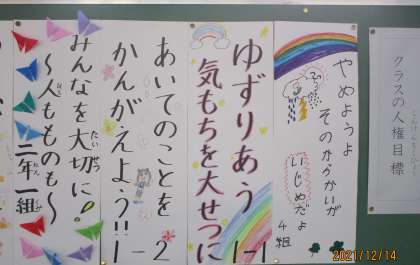 クラスの人権目標
じんけんもくひょう
やめようよ
そのからかいが
いじめだよ
4組
ゆずりあう
気もちを大せつに
1-1
あいてのことを
かんがえよう!!
1-2
みんなを大切に!
たいせつ
～人もものも～
ひと
二年一組
ねん
2021/12/14